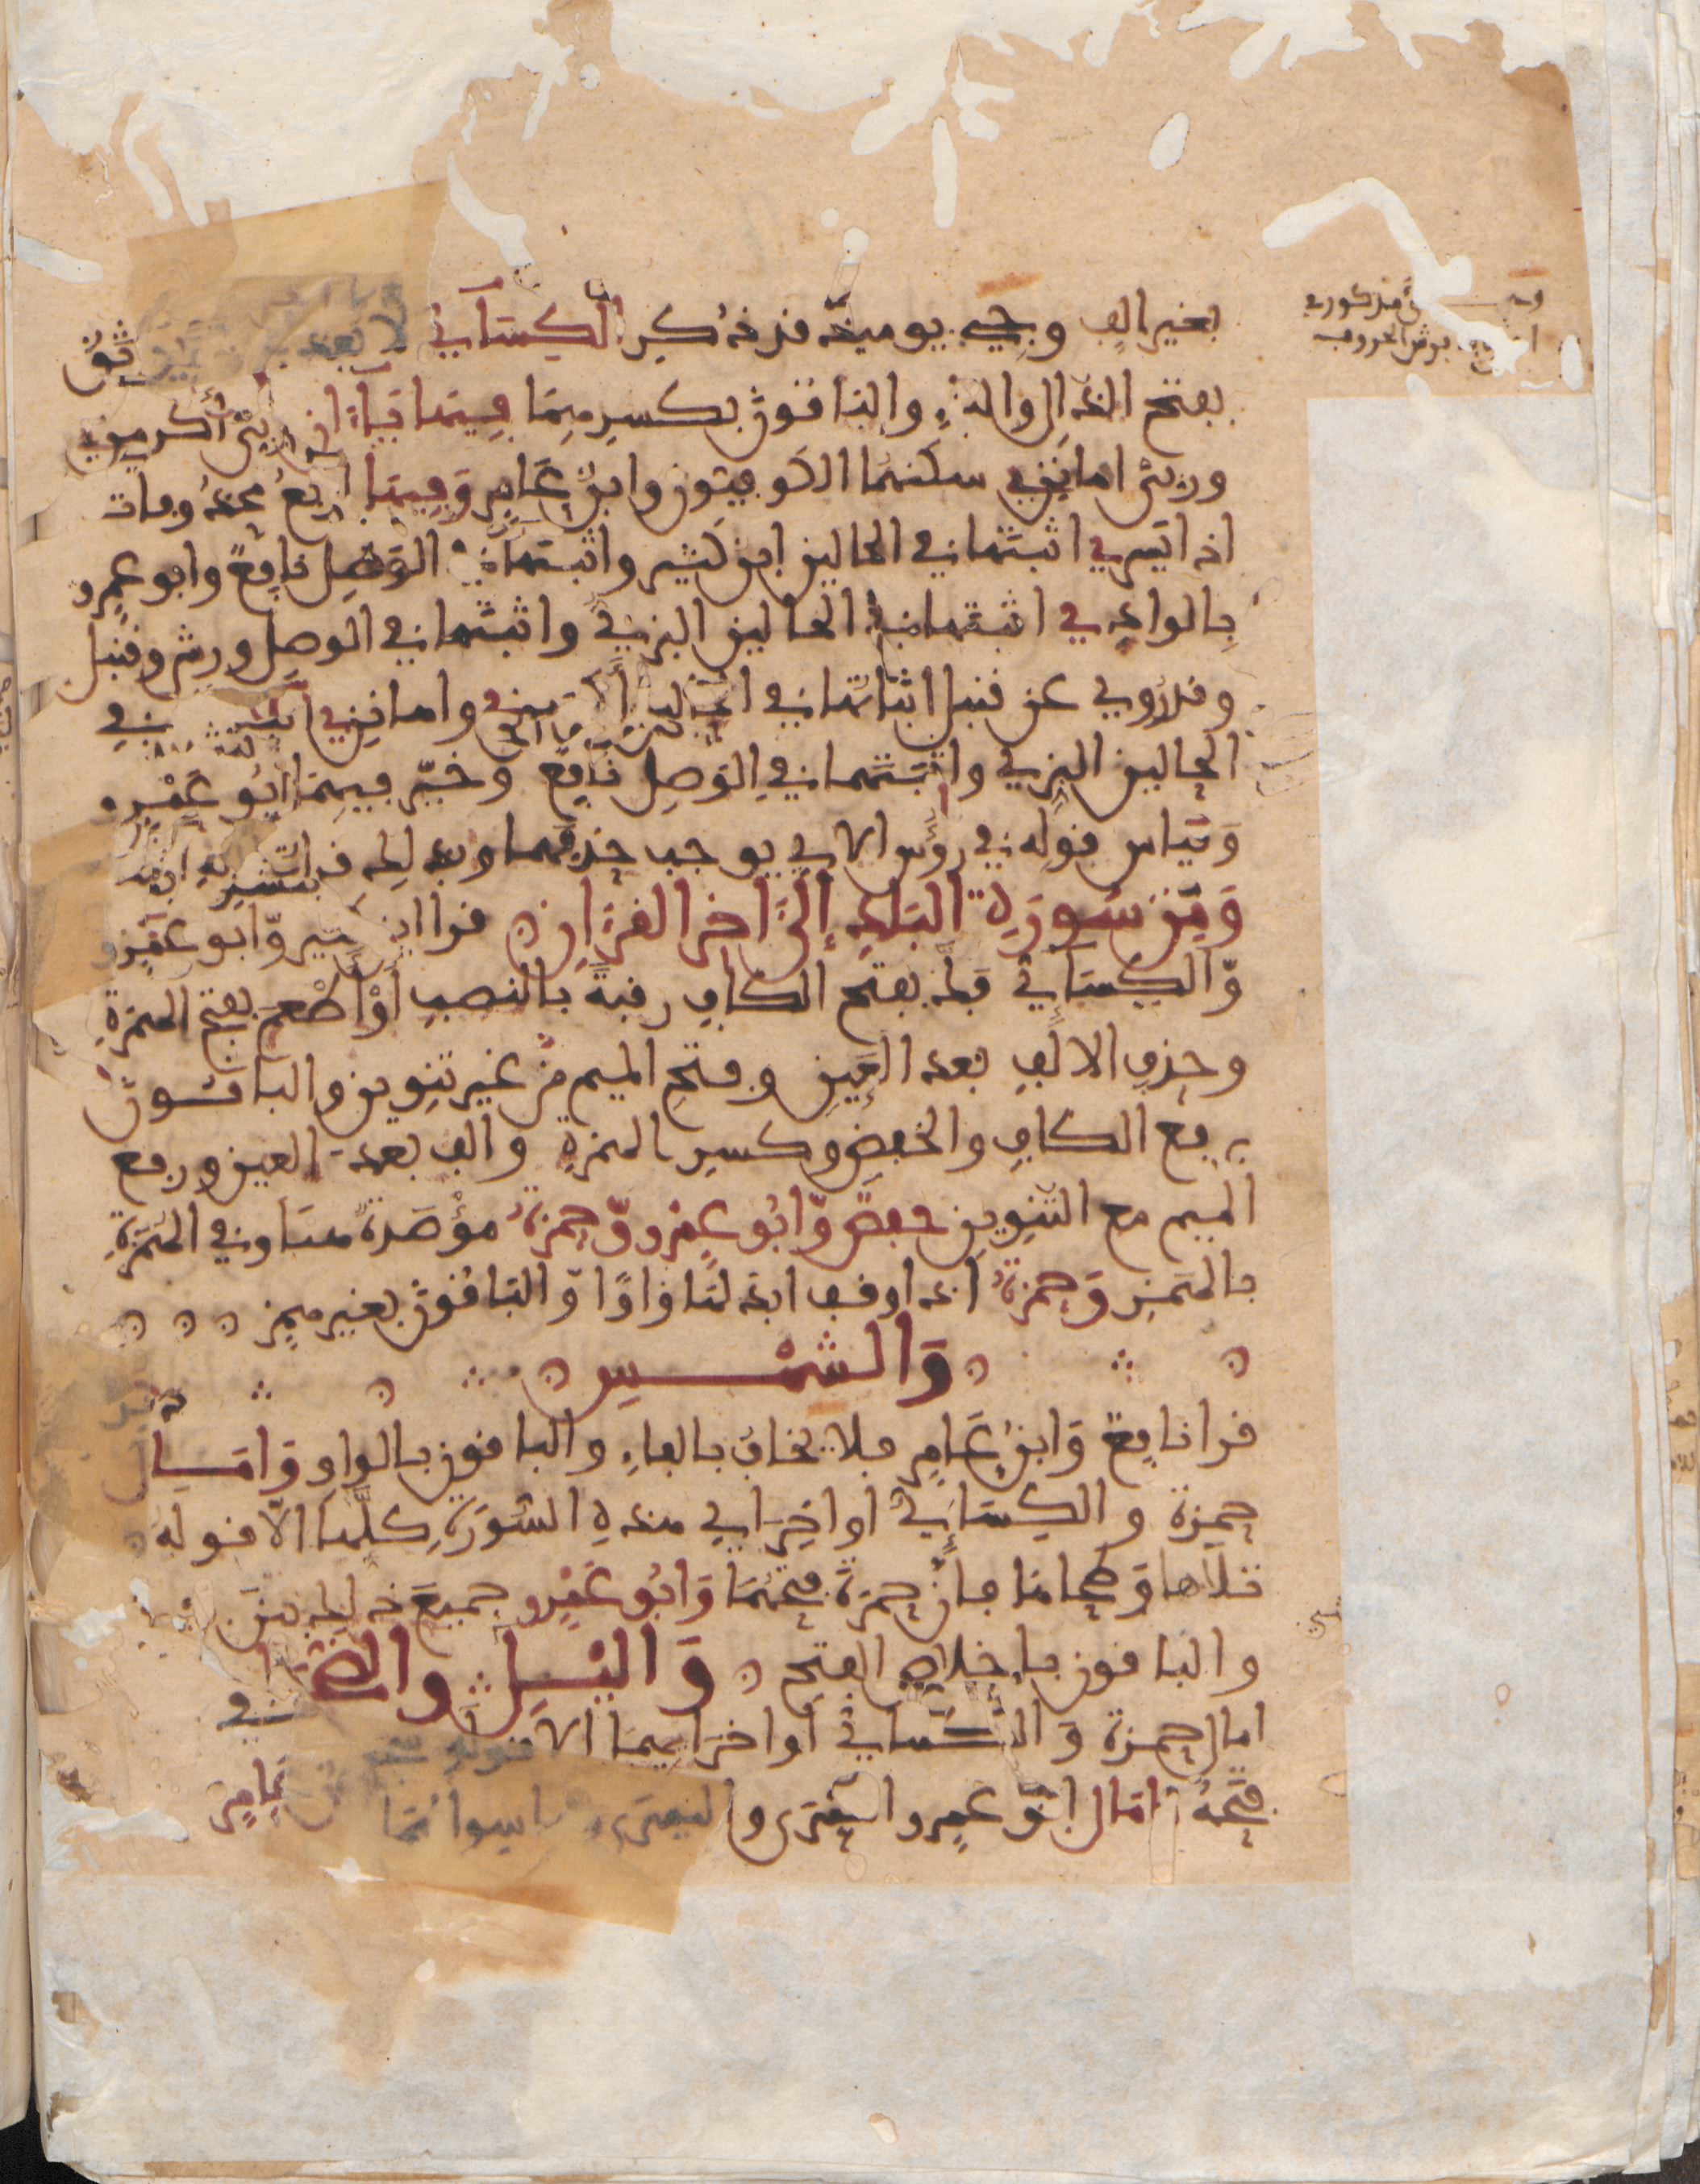 بغير الف وجيء يوميذ قد ذكر الكسآئي لا يعذب ولا يوثق
بفتح الذال والثاء والباقون بكسرهما فيها ياءان ربي أكرمن
وربي اهانن سكنهما الكوفيون وابن عامر وفيها اربع محذوفات
اذا يسر اثبتها في الحالين ابن كثير واثبتها في الوصل نافع وابو عمرو
بالواد اثبتها في الحالين البزي واثبتها في الوصل ورش وقنبل
وقد روي عن قنبل اثباتها في الحالين اكرمن واهانن اثبتهما في
الحالين البزي واثبتهما في الوصل نافع وخير فيهما ابو عمرو
وقياس قوله في رؤس الاي يوجب حذفهما وبذلك قرات
ومن سورة البلد إلى اخر القرءان قرا ابن كثير وابو عمرو
والكسآئي فك بفتح الكاف رقبة بالنصب أو أطعم بفتح الهمزة
وحذف الالف بعد العين وفتح الميم من غير تنوين والباقون
برفع الكاف والخفض وكسر الهمزة والف بعد العين ورفع
الميم مع التنوين حفص وابو عمرو وحمزة مؤصدة هنا وفي الهمزة
بالهمز وحمزة اذا وقف ابدلها واوا والباقون بغير همز
والشمس
قرا نافع وابن عامر فلا يخاف بالفاء والباقون بالواو وامال
حمزة والكسائي اواخر اي هذه السورة كلها الا قوله
تلاها وطحاها فان حمزة فتحهما وابو عمرو جميع ذلك بين بين
والباقون باخلاص الفتح واليل والضحى
امال حمزة والكسائي اواخر ايهما الا قوله سجى
فتحه امال ابو عمرو اليسرى والعسرى وما سواهما